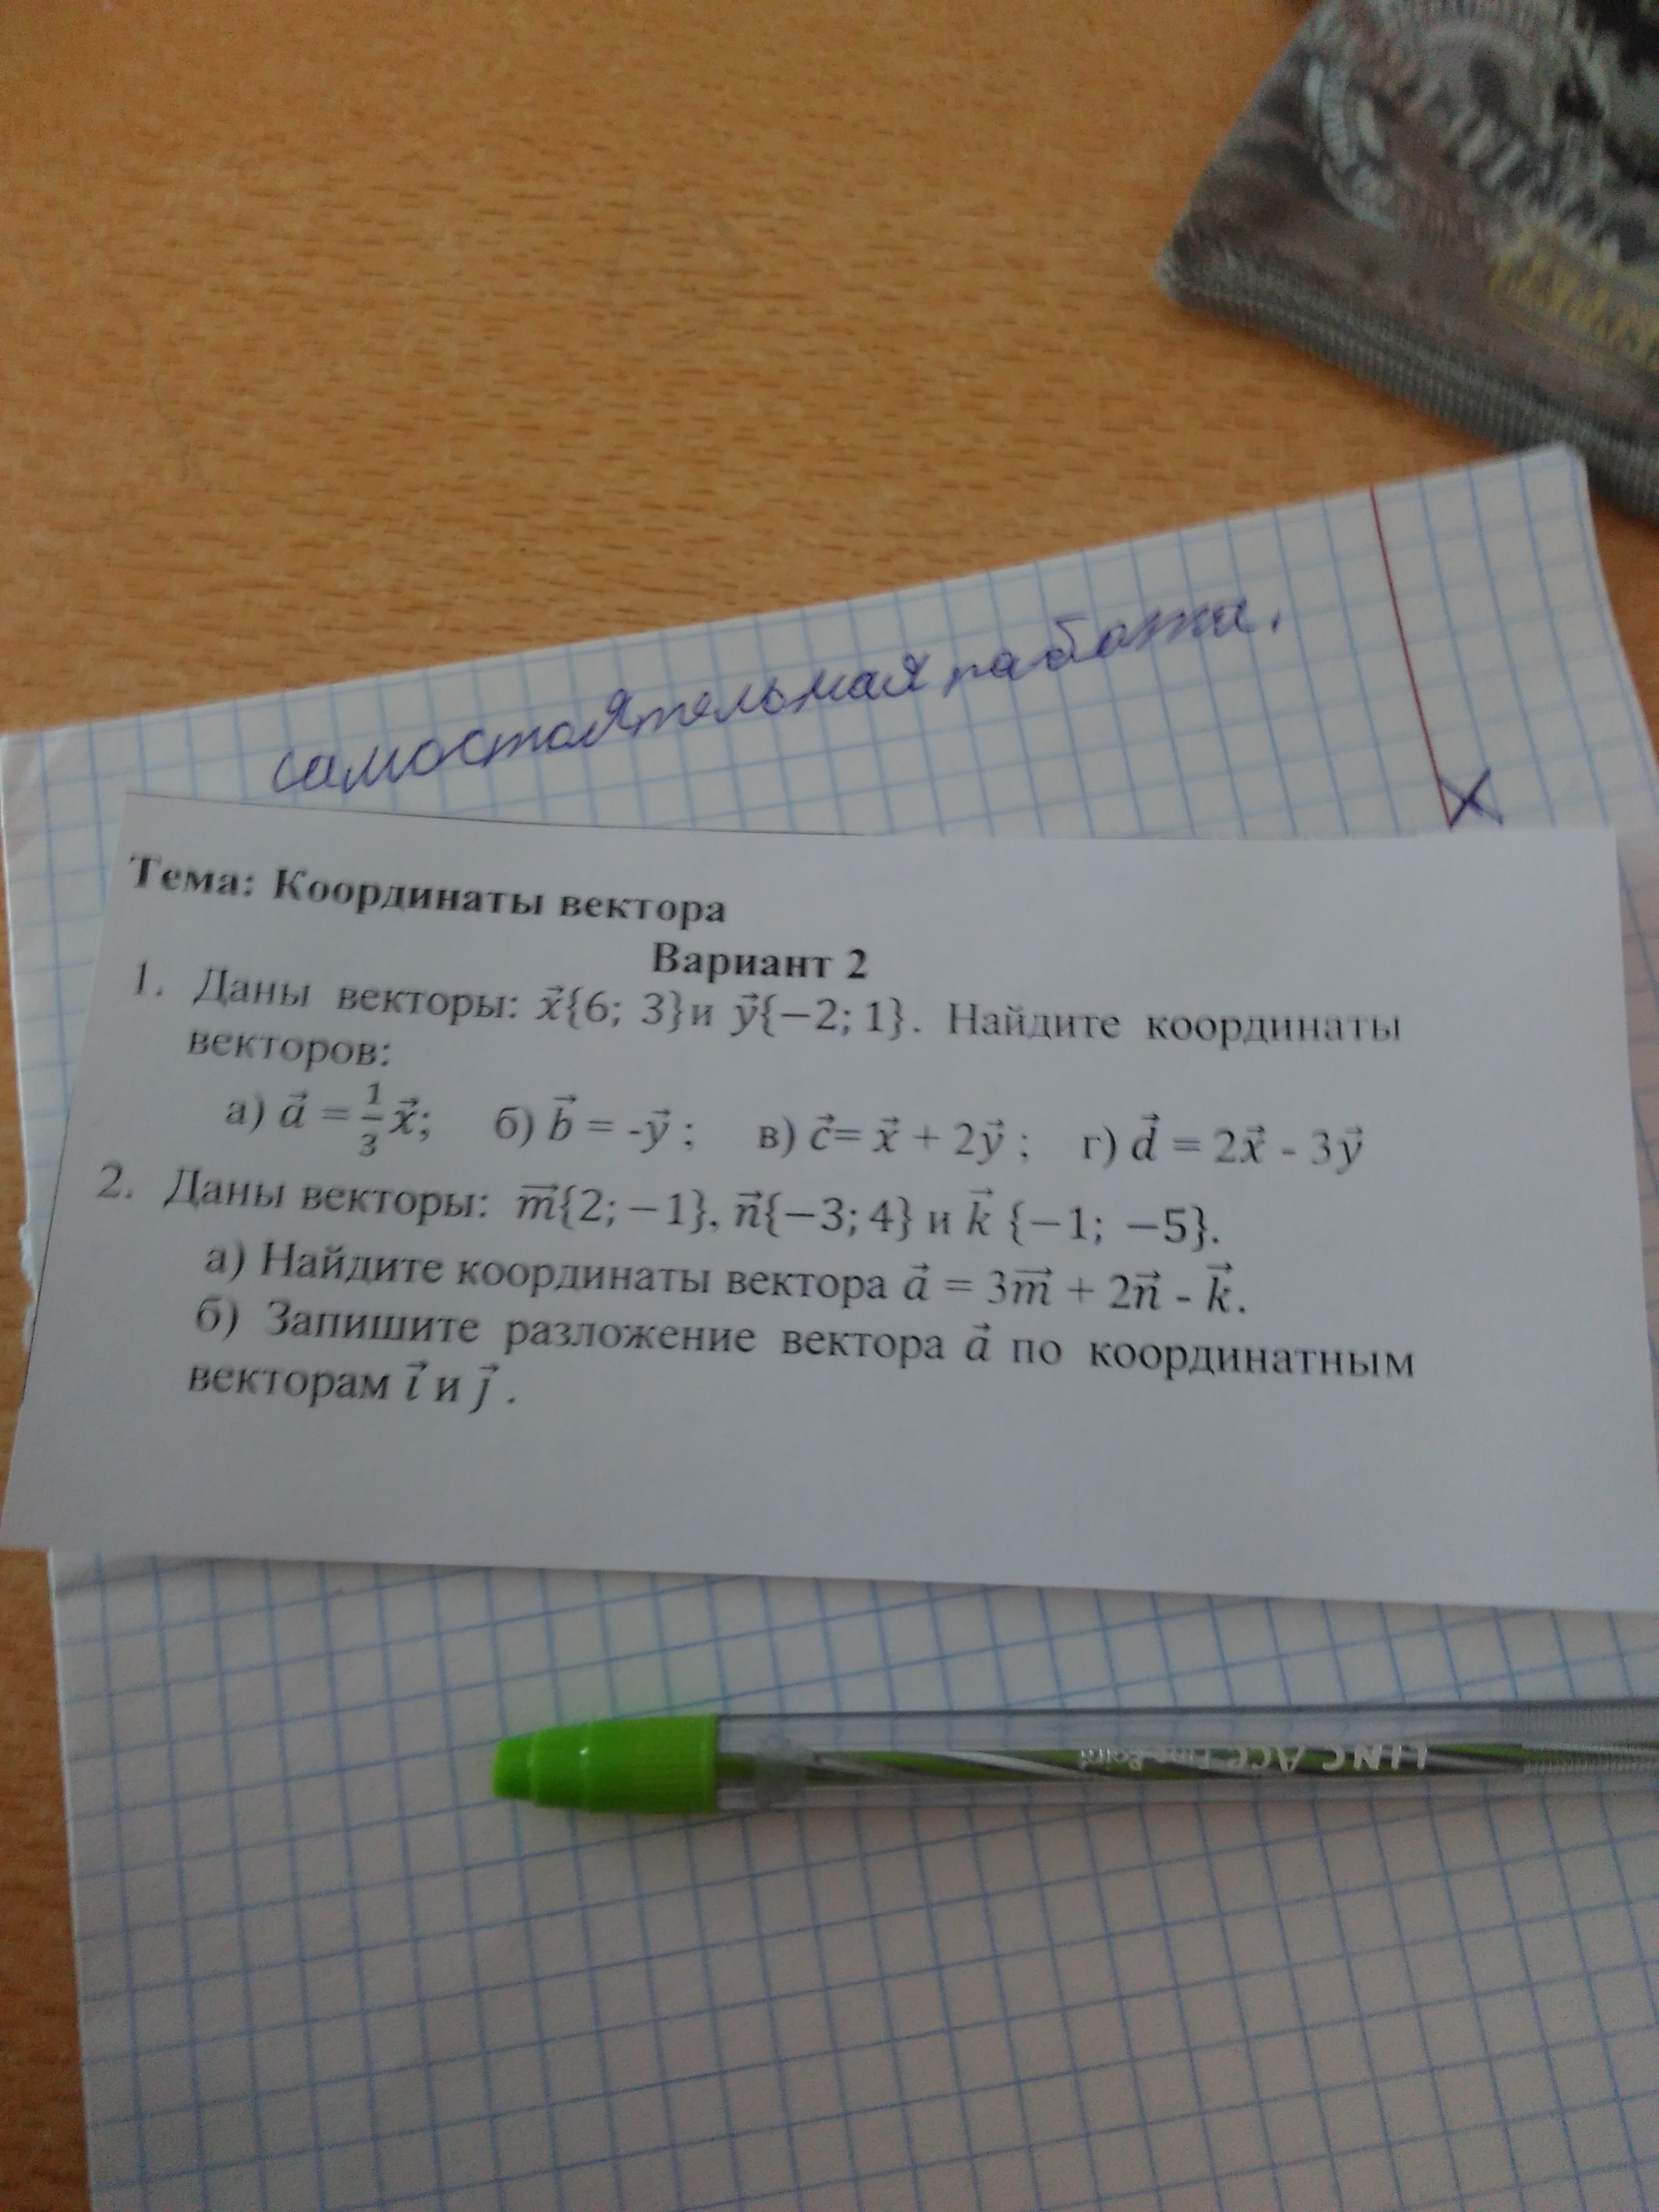 самостоятельная работа.
Тема: Координаты вектора
Вариант 2
1. Даны векторы: x⃗{6; 3}и y⃗{−2; 1}. Найдите координаты
векторов:
а) a⃗ = 1/3 x⃗; б) b⃗ = -y⃗ ; в) c⃗= x⃗ + 2y⃗ ; г) d⃗ = 2x⃗ - 3y⃗
2. Даны векторы: m⃗{2; −1}, n⃗{−3; 4} и k⃗ {−1; −5}.
а) Найдите координаты вектора a⃗ = 3m⃗ + 2n⃗ - k⃗.
б) Запишите разложение вектора a⃗ по координатным
векторам i⃗ и j⃗ .
LINC ACC